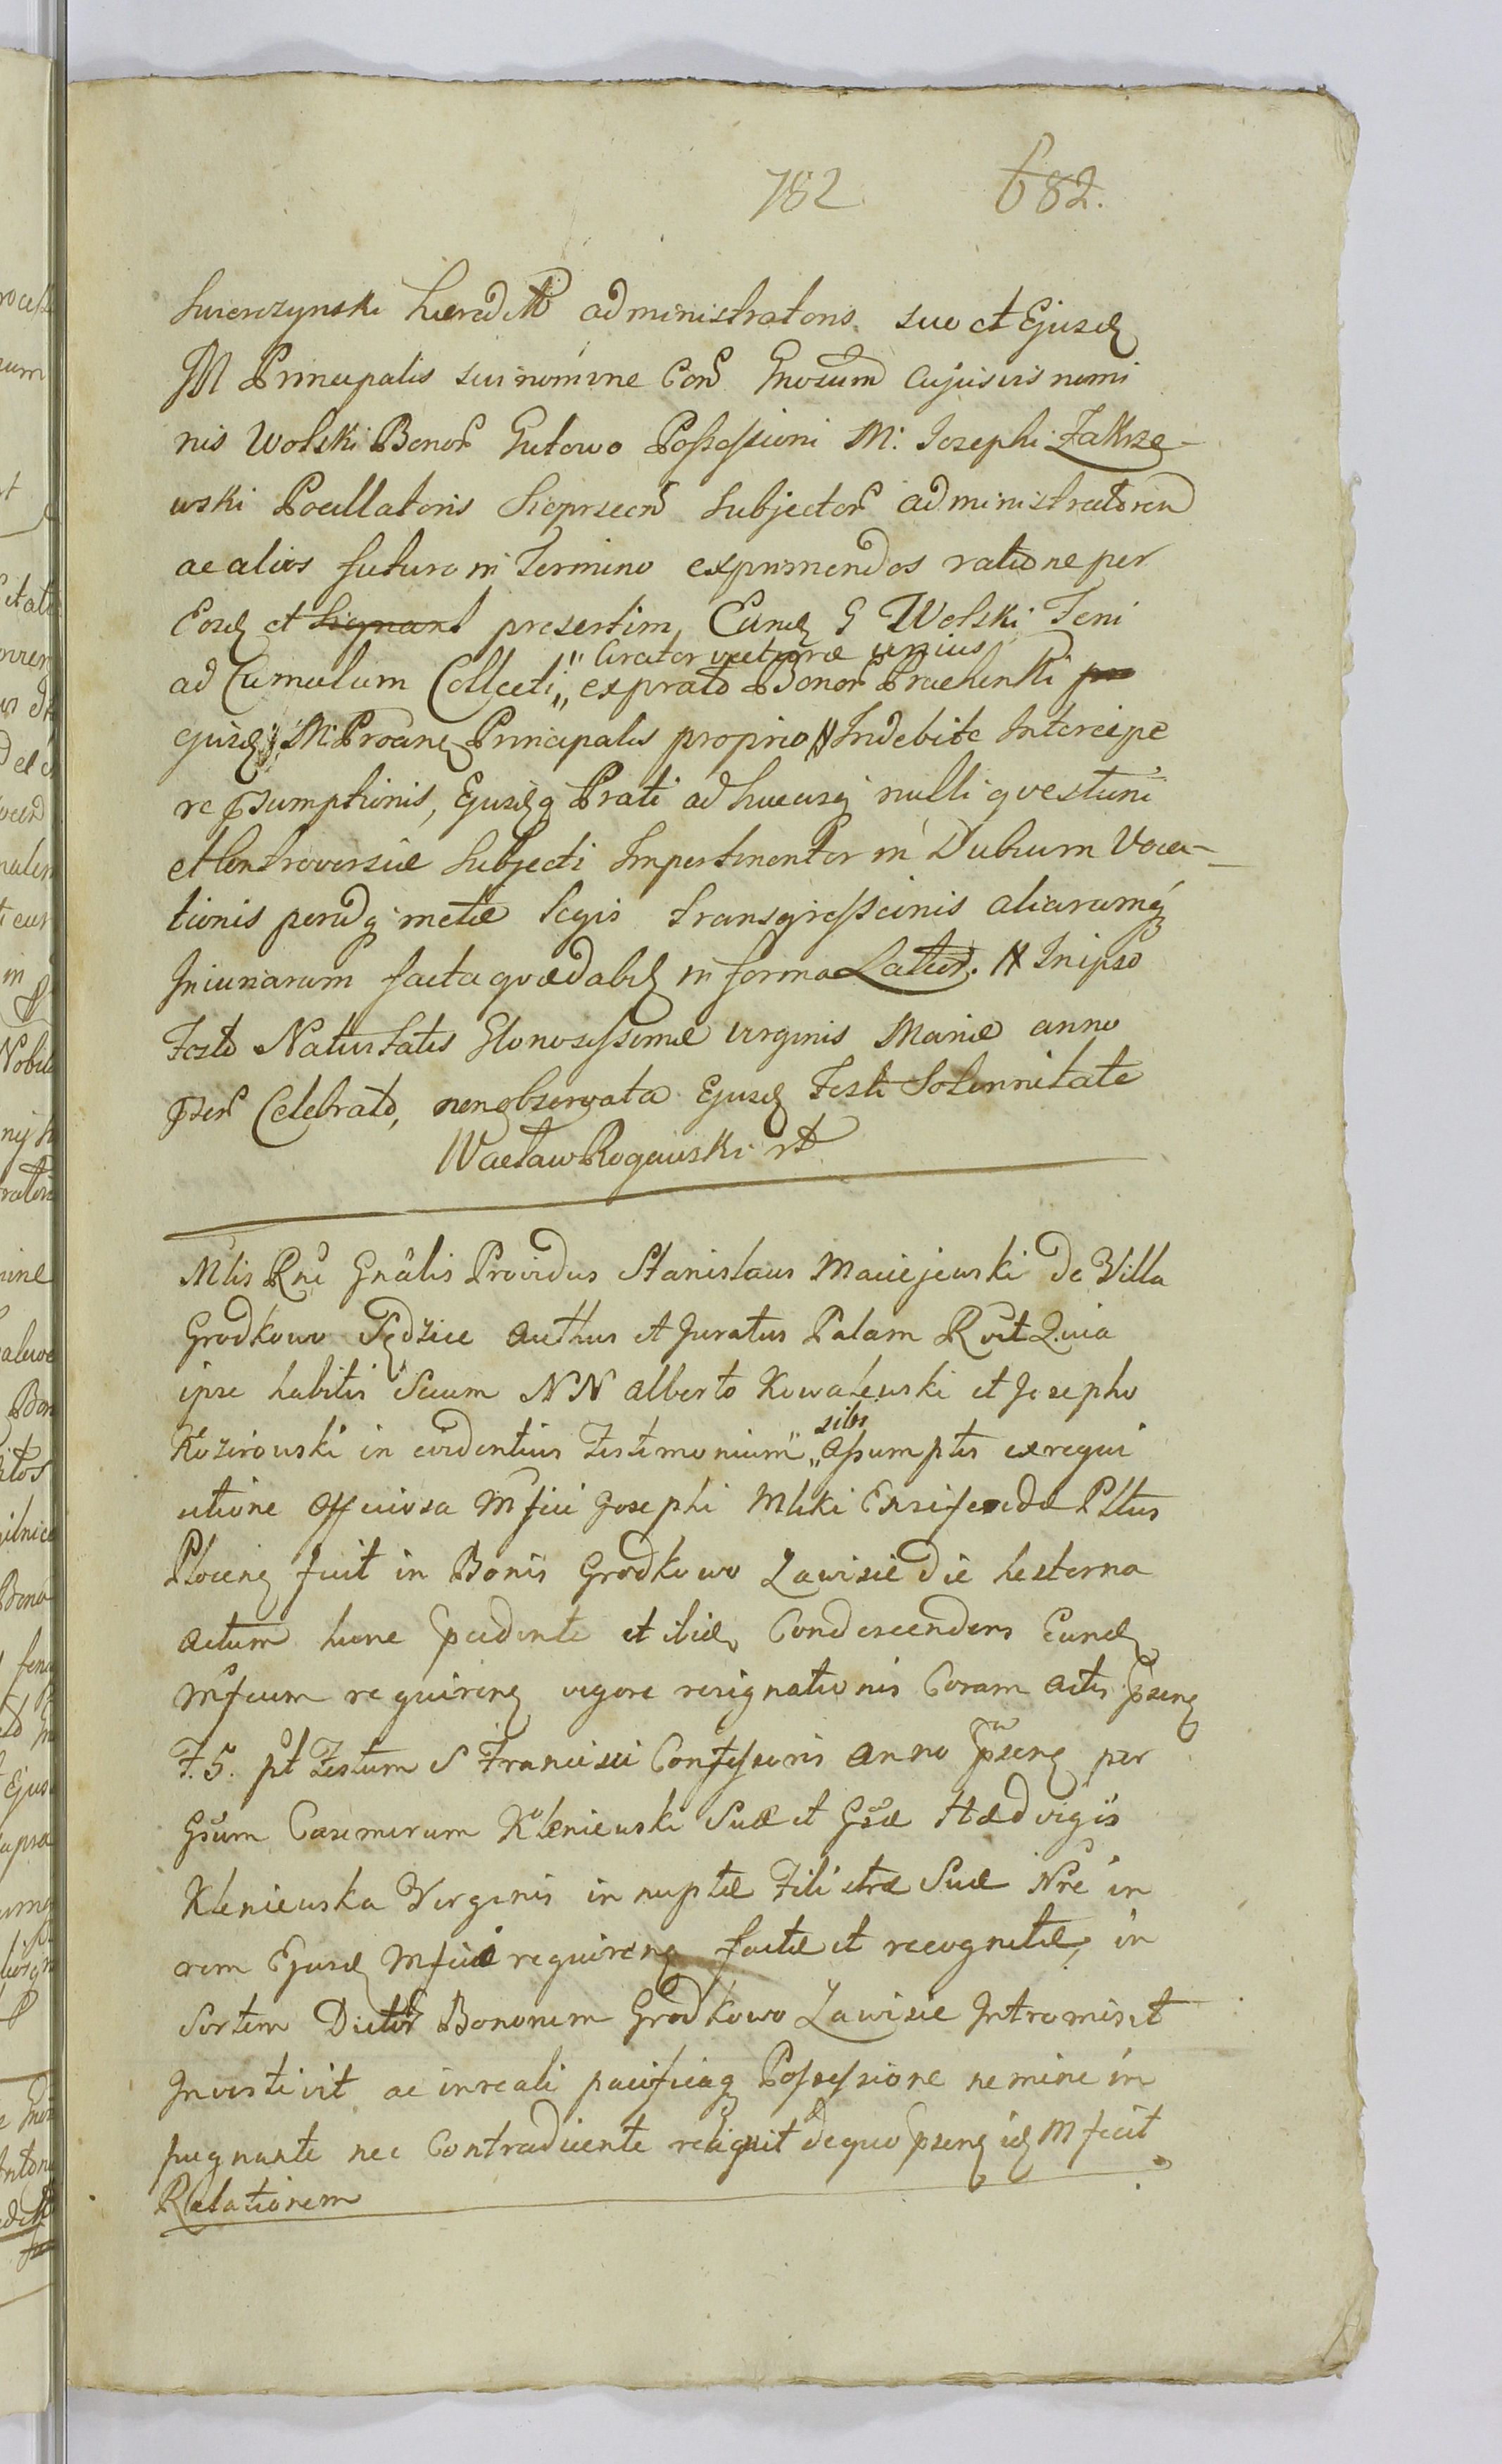 782 682.
Swierczynski hæred administratoris suo et Ejusd
M Principalis sui nomine Con Gnosum cujusvis nomi
nis Wolski Bonor Gutowo Possessioni M: Josephi Zakrze-
wski Pocillatoris Sieprscen Subjector administratorem
ac alios futuro in Termino exprimendos ratione per
Eosd et presertim Eund G Wolski Feni
" Circiter vecturæ unius
ad Cumulum Collecti,, ex prato Bonor
ejusd M Principalis proprio Indebite Intercipe
re psumptionis, Ejusdq Prati ad hucusq nulli qvestioni
et Controversiæ Subjecti Impertinenter in Dubium Voca-
tionis pendq metæ legis transgressionis aliarumq
Injuriarum facta qvædabit in forma Latior. # In ipso
Festo Nativitatis Gloriosissimæ Virginis Mariæ anno
psen Celebrato, non observata Ejusd Festi Solennitate
Wacław Rogowski
Mlis Rni Gnalis Providus Stanislaus Maciejewski de Villa
Grodkowo Sędzice Authus et Juratus Palam R vit Quia
ipse habitis secum NN Alberto Kowalewski et Josepho
sibi
Kozirowski in evidentius Testimonium,, assumptis ex requi
sitione officiosa Mfici Josephi Mliki Ensiferidæ Pltus
Plocen fuit in Bonis Grodkowo Zawisie die hesterna
actum hunc pcedente et ibid Condescendens Eund
Mficum requirens vigore resignationis Coram actis psens
F. 5. pt Festum S Francisci Confessoris anno psens per
Gsum Casimirum Kleniewski Suæ et Gsæ Hædvigis
Kleniewska Virginis innuptæ Filiastræ Suæ Nre in
rem Ejusd Mfici requirens factæ et recognitæ, in
Sortem Dictor Bonorum Grodkowo Zawisie Intromisit
Investivit ac in reali pacificaq Possessione nemine im
pugnante nec Contradicente reliquit de quo psens id M fecit
Relationem